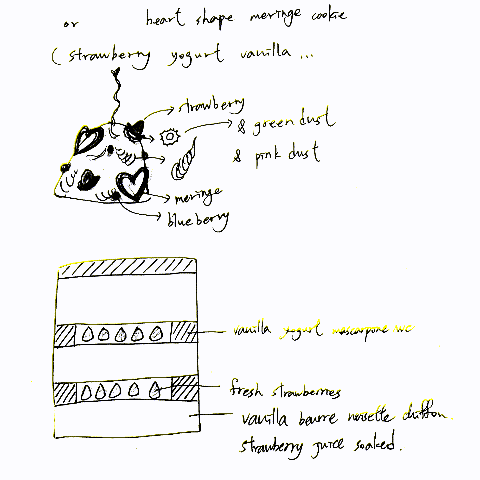 or heart shape meringe cookie
( strawberry yogurt vanilla ...
strawberry
& green dust
& pink dust
meringe
blueberry
vanilla yogurt mascarpone
fresh strawberries
vanilla beurre noisette
strawberry juice soaked.